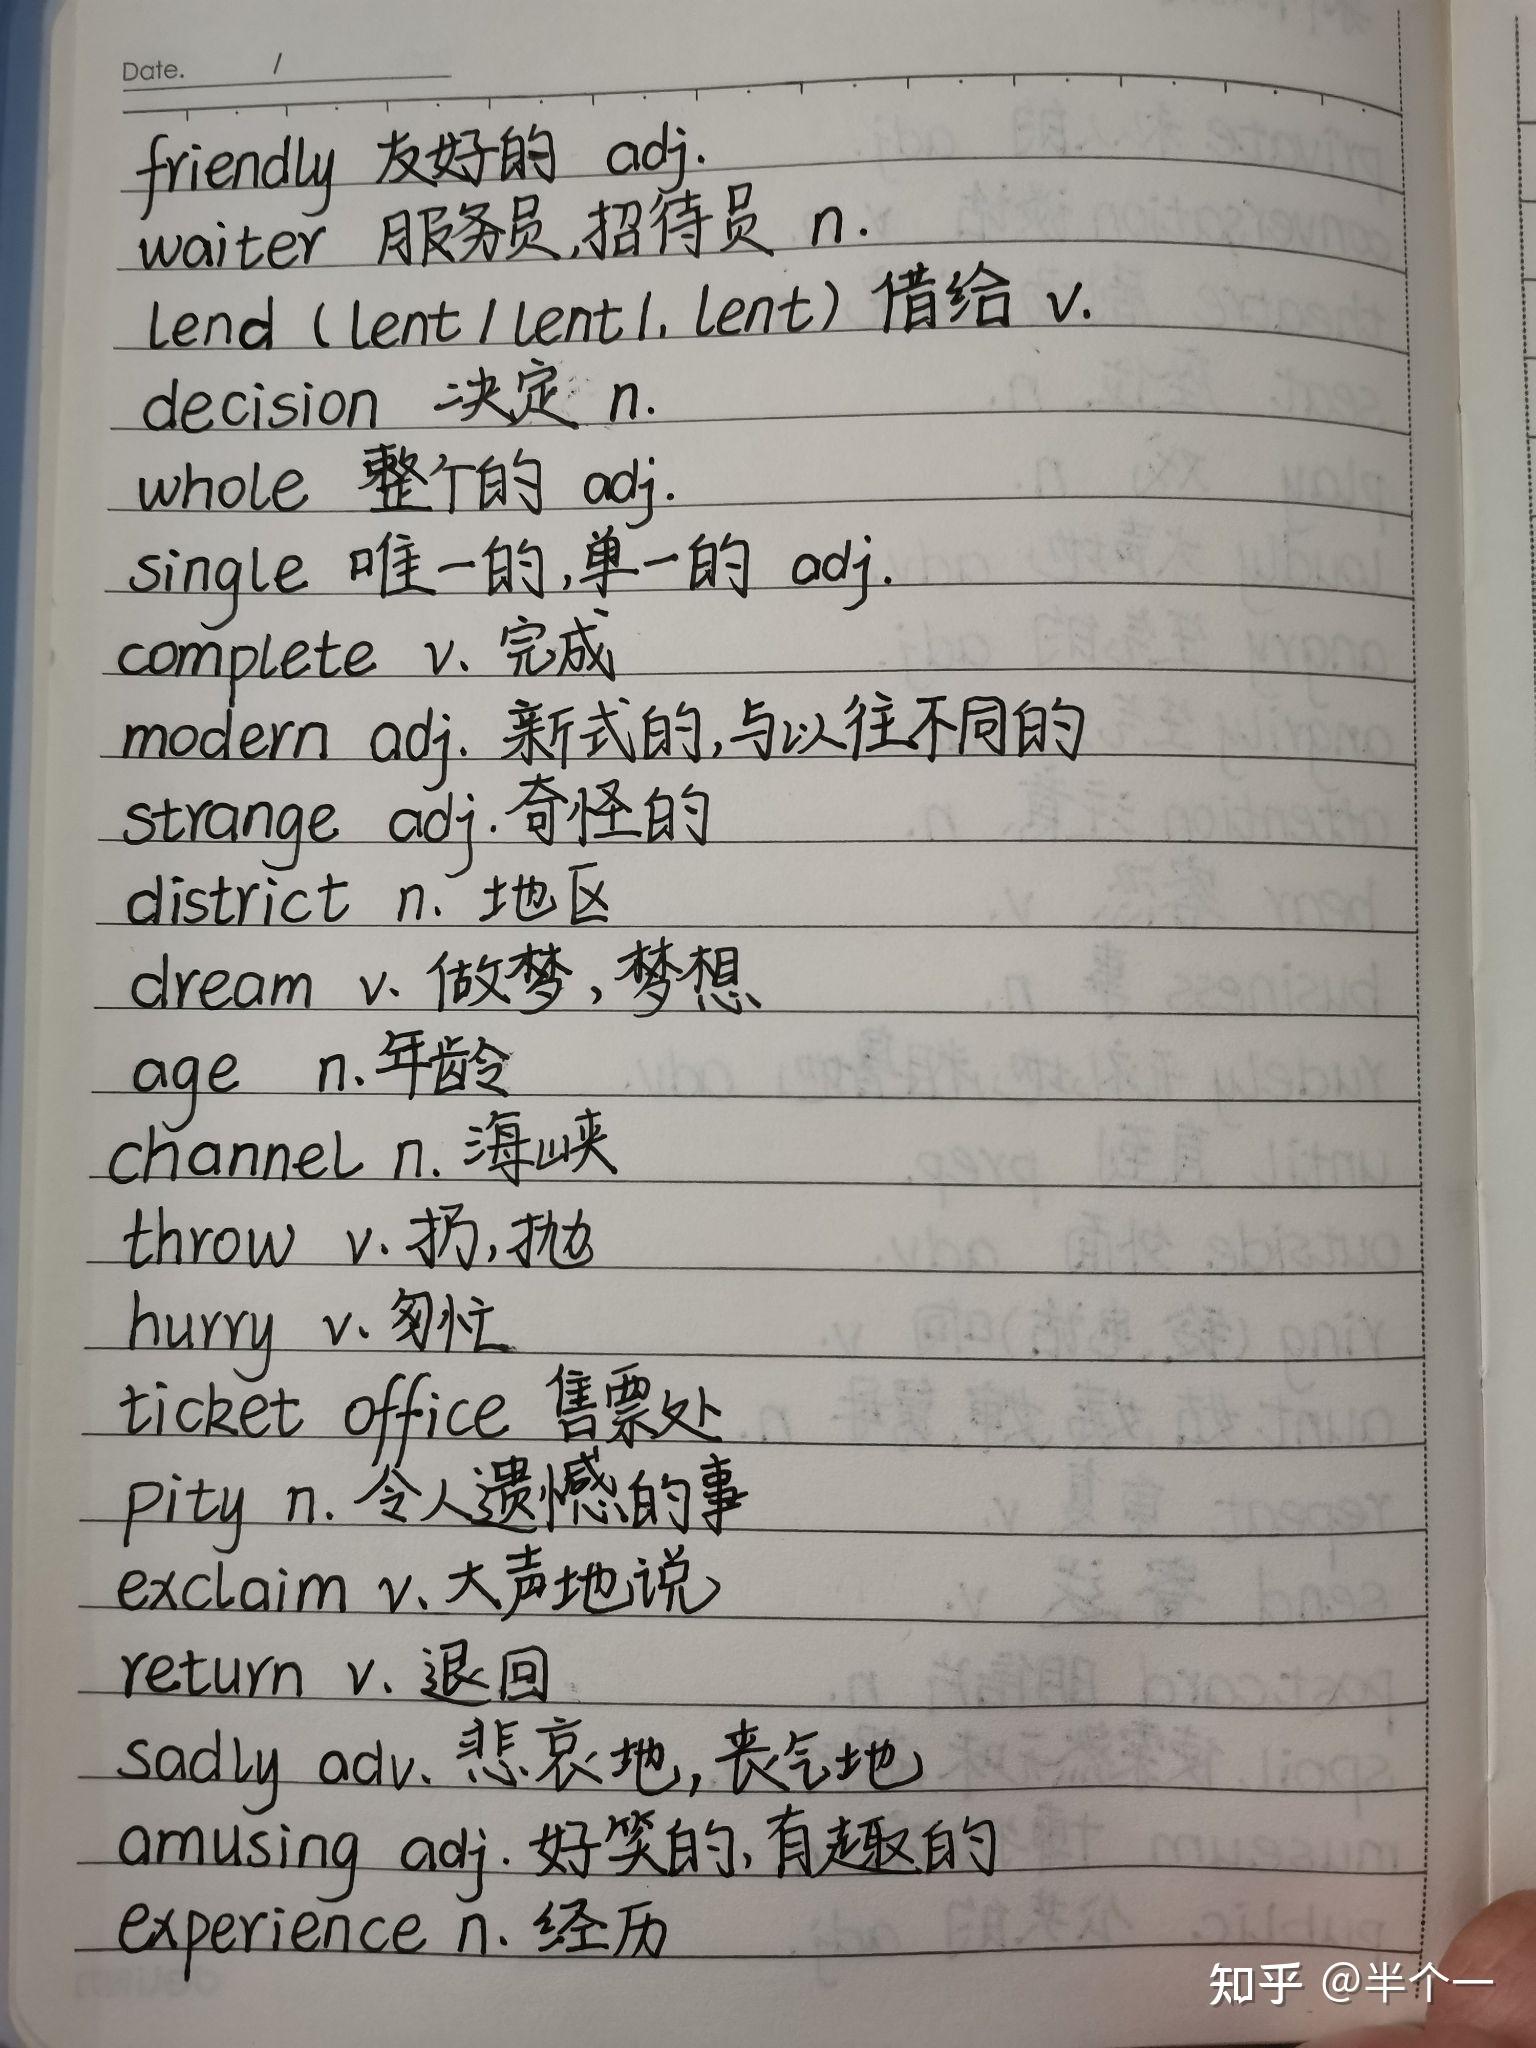 Date. /
friendly 友好的 adj.
waiter 服务员,招待员 n.
lend (lent/lent/. lent) 借给 v.
decision 决定 n.
whole 整个的 adj.
single 唯一的,单一的 adj.
complete v. 完成
modern adj. 新式的,与以往不同的
strange adj. 奇怪的
district n. 地区
dream v. 做梦,梦想
age n. 年龄
channel n. 海峡
throw v. 扔,抛
hurry v. 匆忙
ticket office 售票处
pity n. 令人遗憾的事
exclaim v. 大声地说
return v. 退回
sadly adv. 悲哀地,丧气地
amusing adj. 好笑的,有趣的
experience n. 经历
知乎 @半个一